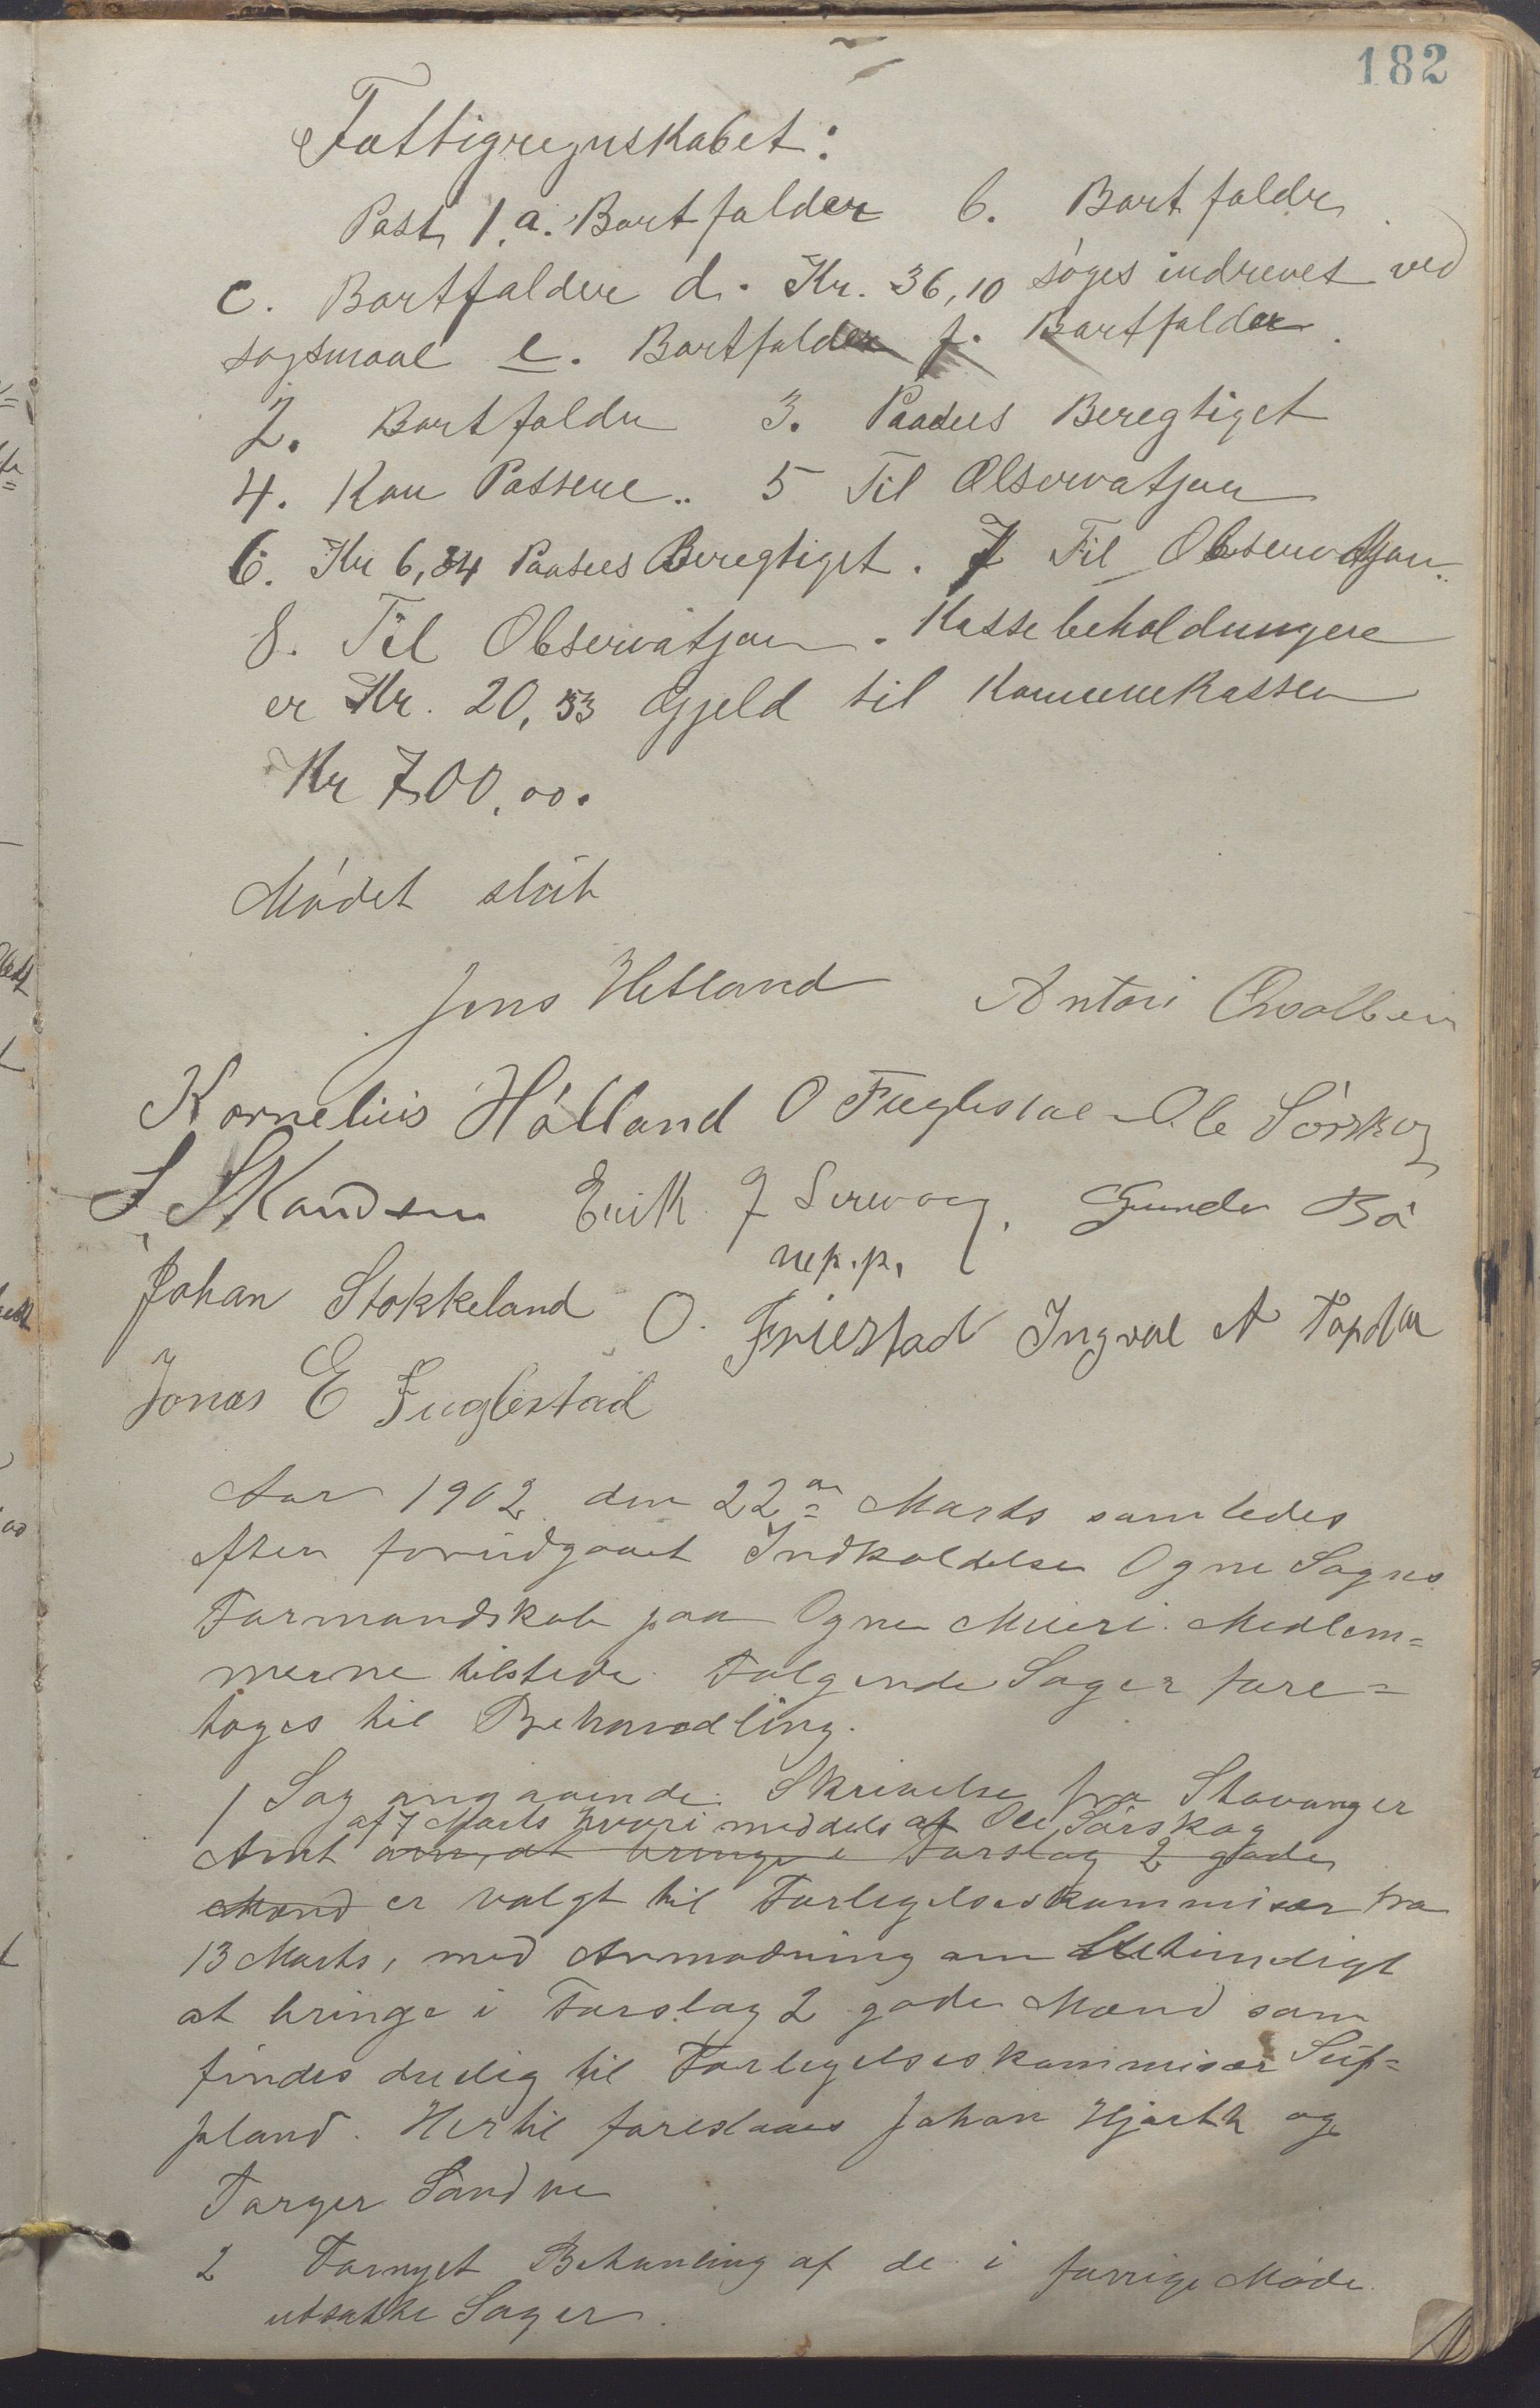 182
Fattigregnskabet:
Post 1.a. Bortfalder b. Bortfalder
c. Bortfalder d. Kr. 36,10 søges indrevet ved
søgsmaal e. Bortfalder f. Bortfalder.
2. Bortfalder 3. Paasees Beregtiget
4. Kan Passere. 5 Til Observatjon
6. Kr 6,84 Paasees Beregtiget. 7 Til Observatjon.
8. Til Observatjon. Kassebeholdningen
er Kr. 20,53 Gjeld til Komunekassen
Kr 700,00.
Mødet slut
Jens Hetland Anton
Kornelius Hölland O Fuglestad Ole Sørskog
S Skandsen Erik J Sirevaag. Gunder Bö
rep.p.
Johan Stokkeland O. Friestad Ingval A
Jonas E Fuglestad
Aar 1902 den 22de Marts samledes
efter forudgaaet Indkaldelse Ogne Sogns
Formandskab paa Ogne Mieri. Medlem=
merne tilstede. Følgende Sager fore=
toges til Behandling.
1 Sag angaaende Skrivelse fra Stavanger
af 7 Marts hvori meddeles at Ole Sørskog
Amt om, at bringe i Forslag 2 gode
Mænd er valgt til Forligelseskommisær fra
13 Marts, med Anmodning om
at bringe i Forslag 2 gode Mænd som
findes duelig til Forligelseskommisær Sup=
pland. Hertil foreslaaes Johan Hjorth og
Torger Sandve
2 Fornyet Behanling af de i forrige Møde
utsatte Sager.